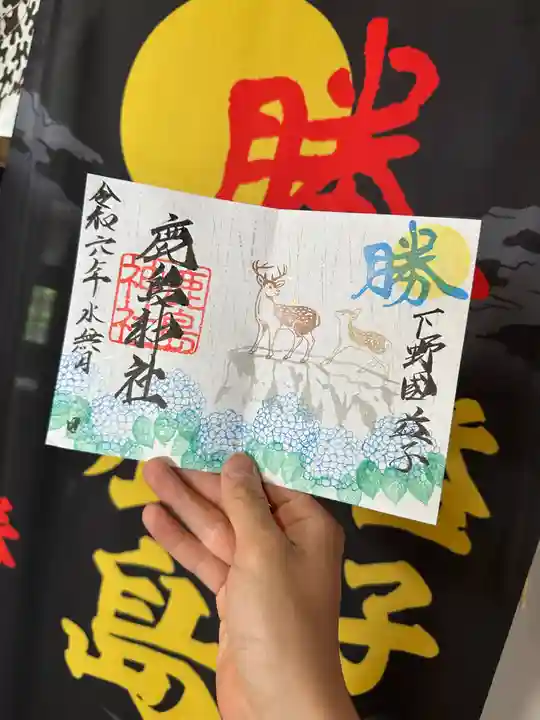 勝
勝
下野國益子
鹿島神社
鹿島神社
令和六年水無月
日
子
島